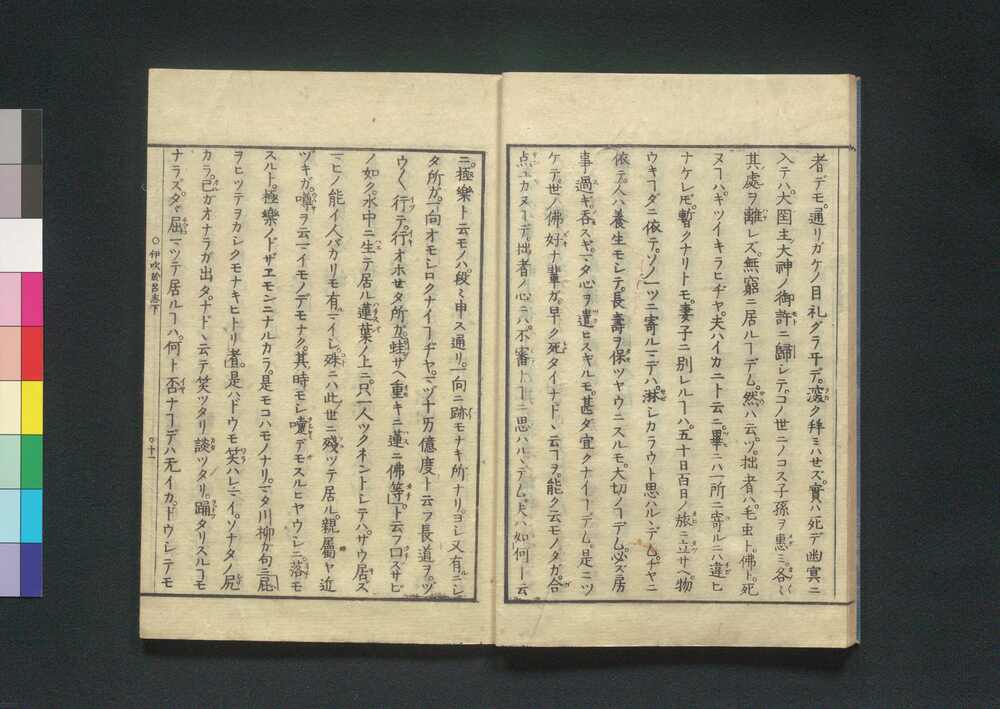 者デモ。通リガケノ目礼グラ井デ。深ク拜ミハせズ。實ハ死デ幽冥ニ
入テハ。大国主大神ノ御許ニ歸シテ。コノ世ニノコス子孫ヲ惠ミ。各〻
其處ヲ離レズ。無窮ニ居ルヿデム。然ハ云ヅ。拙者ハ毛虫ト。佛ト。死
ヌヿハ。キツイキラヒヂヤ。夫ハイカニト云ニ。畢ニハ一所ニ寄ルニハ違ヒ
ナケレ𪜈。暫クナリトモ。妻子ニ別レルヿハ。五十日百日ノ旅ニ立サヘ物
ウキヿダニ依テ。ソノ一ツニ寄ルマデハ。淋シカラウト思ハルンデム。ヂヤニ
依テ。人ハ養生モシテ。長壽ヲ保ツヤウニスルモ。大切ノヿデム。必ズ房
事過ギ。呑スギ。マタ心ヲ遣ヒスギルモ。甚ダ宜クナイヿデム。是ニツ
ケテ。世ノ佛好ナ輩ガ。早ク死タイナド丶云ヿヲ。能ク云モノダガ。合
点ユカヌヿデ。拙者ノ心ニハ。不審ナヿニ思ハル丶デム。夫ハ如何トナレバ
ニ。極樂ト云モノハ。段〻申ス通リ。一向ニ跡モナキ所ナリ。ヨシ又有ニシ
タ所ガ。一向オモシロクナイヿヂヤ。マヅ十万億度ト云フ長道ヲ。ヅ
ウ〳〵行テ。行オホせタ所ガ。蛙サヘ重キニ蓮ニ佛等ト云フ口ズサビ
ノ如ク。水中ニ生テ居ル蓮葉ノ上ニ。只一人ツクネントシテハ。ザウ居ズ
マヒノ能イ人バカリモ有マイシ。殊ニハ此世ニ殘ツテ居ル。親屬ヤ近
ヅキガ。噂ヲ云マイモノデモナク。其時モシ嚔デモスルヒヤウシニ。落モ
スルト。極樂ノドザヱモンニナルカラ。是モコハモノナリ。マタ川柳ガ句ニ屁
ヲヒツテヲカシクモナキヒトリ者。是ハドウモ笑ハレマイ。ソナタノ尻
カラ。己ガオナラガ出タ。ナド丶云テ笑ツタリ談ツタリ。踊タリスルヿモ
ナラズ。タヾ屈マツテ居ルヿハ。何ト否ナヿデハ无イカ。ドウシテモ
○伊吹於呂志下
○十一